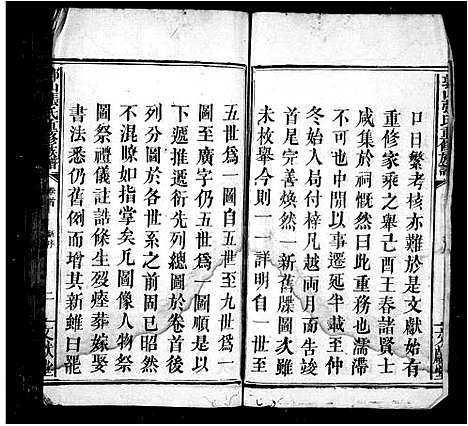 口日繁考核亦難於是文獻始有
重修家乘之舉己酉王春諸賢士
咸集於祠慨然曰此重務也濡滯
不可中閒以事遷延半載至仲
冬始入局付梓凡越兩月而告竣
首尾完善煥然一新舊牒圖次雖
未枚舉今則一一詳明自一世至
五世爲一圖五世至九世爲一
圖至廣字仍五世爲一圖順是以
下遞推遞衍先列總圖於卷首後
列分圖於各世系之前庶昭穆
不混瞭如指掌矣凡圖像人物祭
圖祭禮儀註誥條生歿瘞葬嫁娶
書法悉仍舊例而增其新雖曰罷
山張氏重修族譜
卷首
二
文獻堂